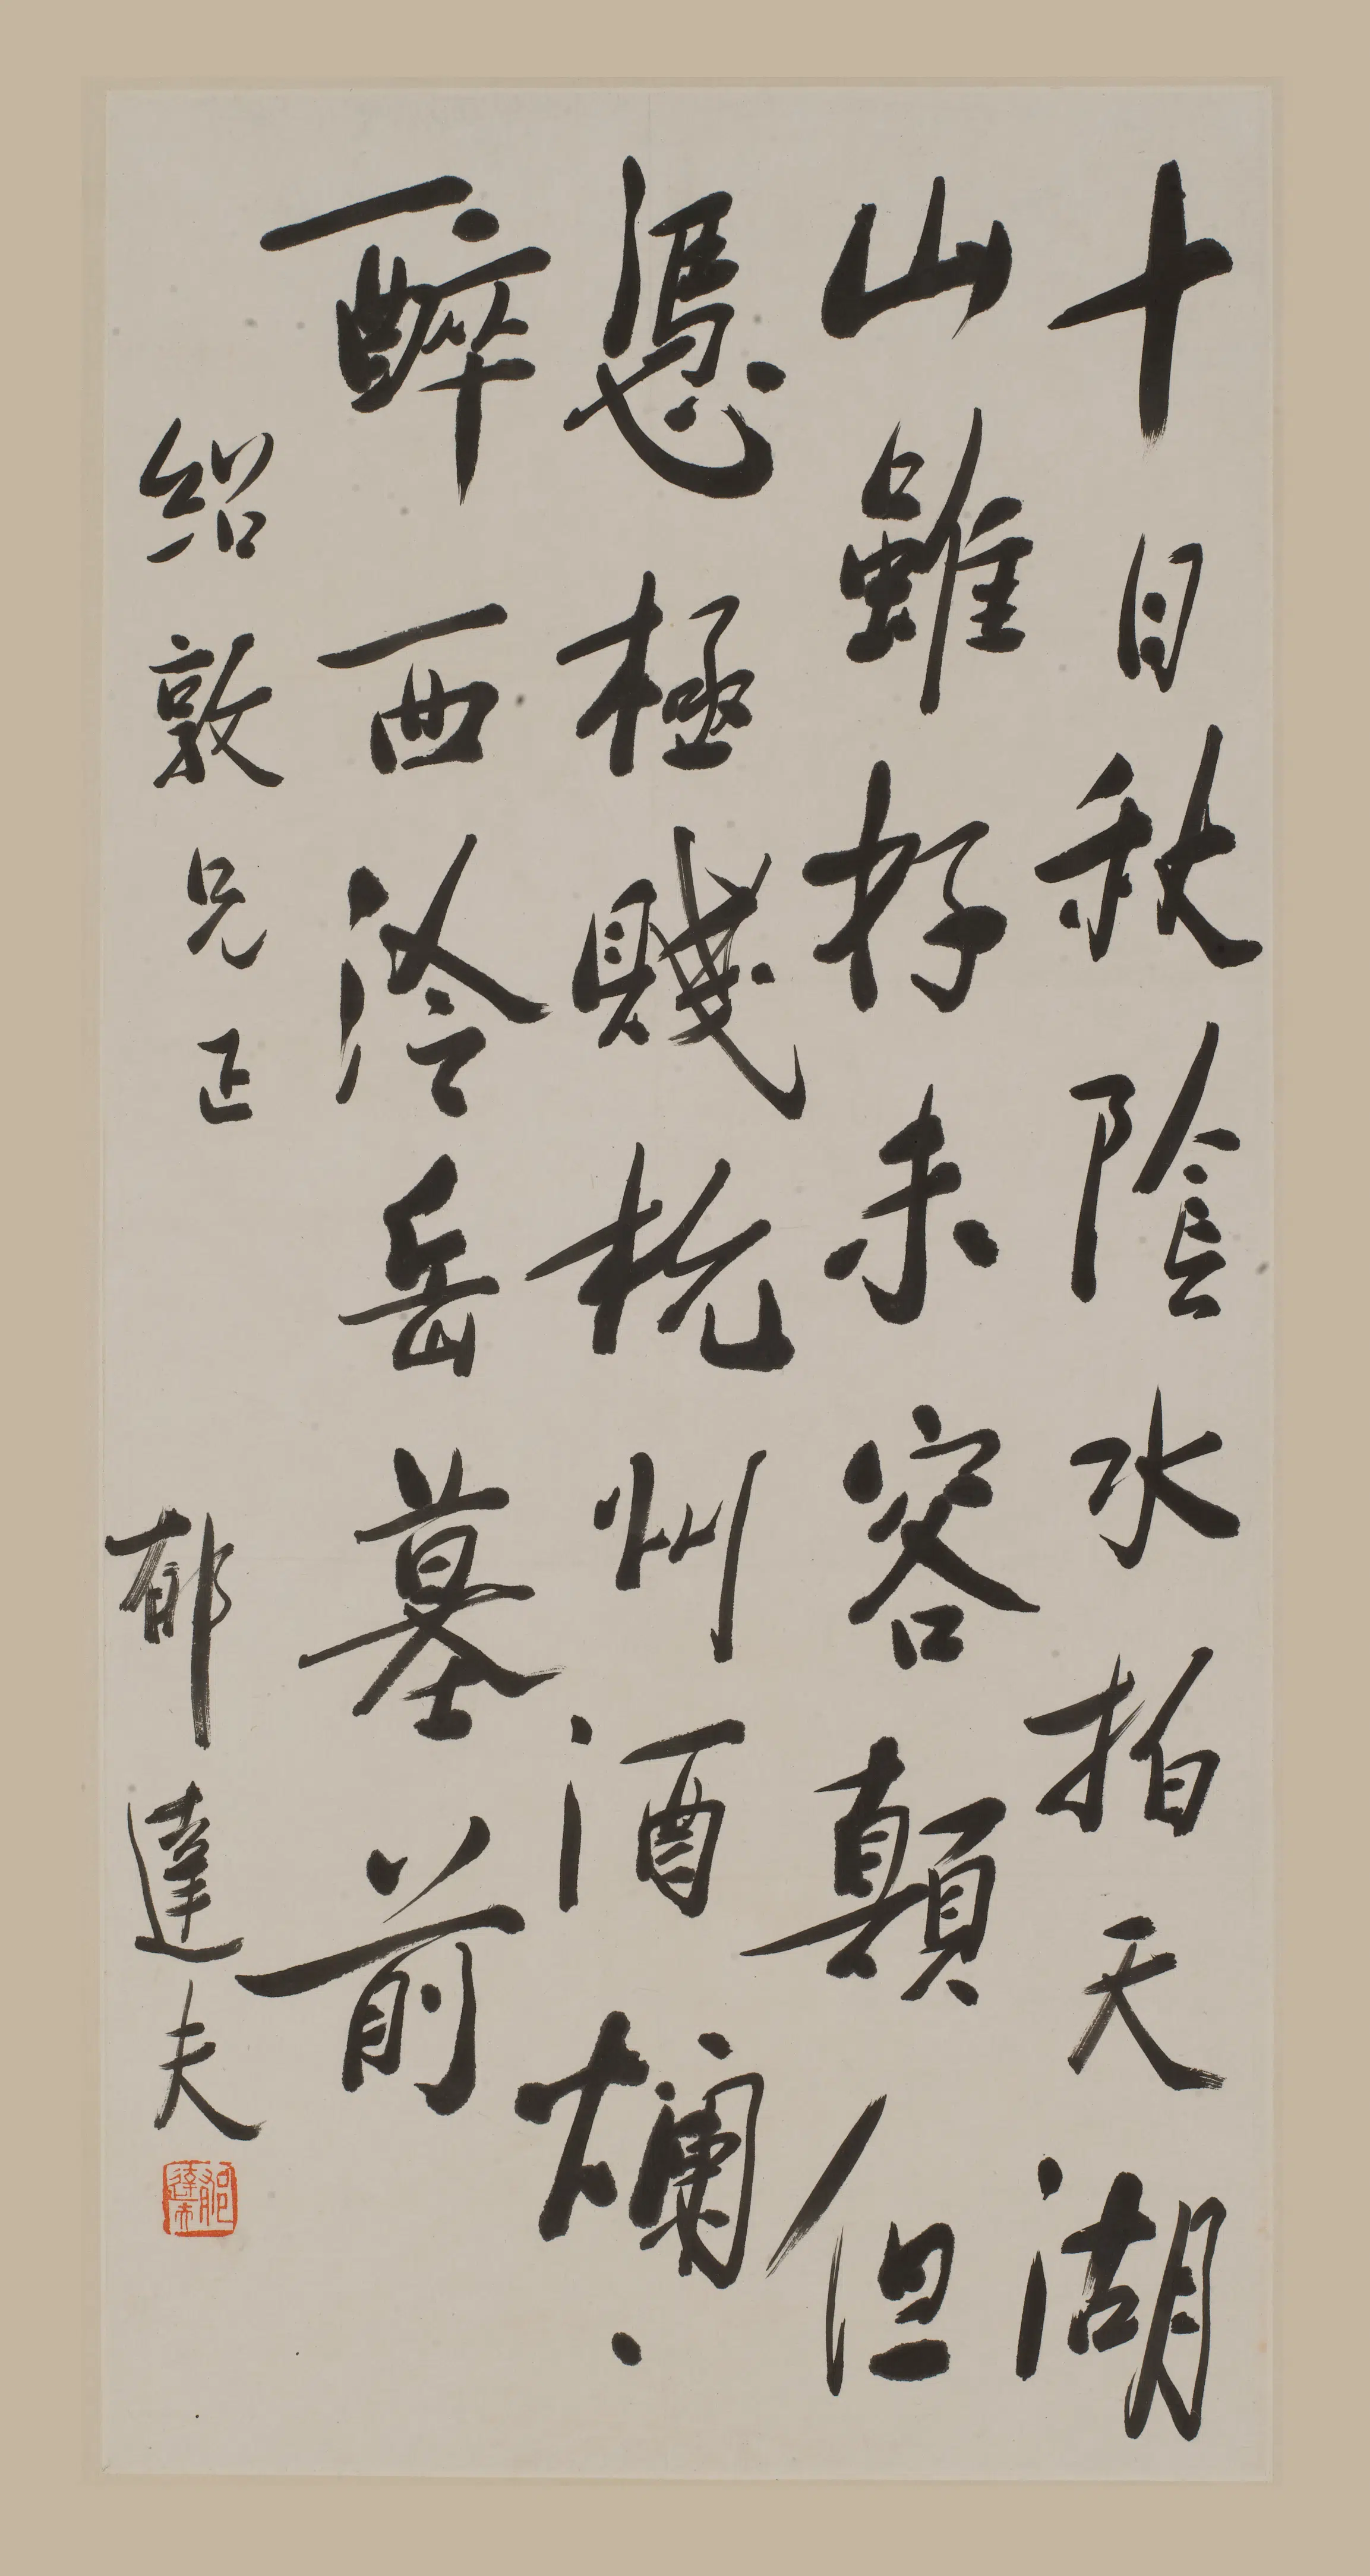 十日秋陰水拍天湖
山雖好未容顛但
憑極賤杭州酒爛
醉西泠岳墓前
紹敦兄正
郁達夫
郁達夫